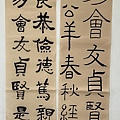 會友貞賢
公羊春秋經
良恭儉德篤
會友貞賢是